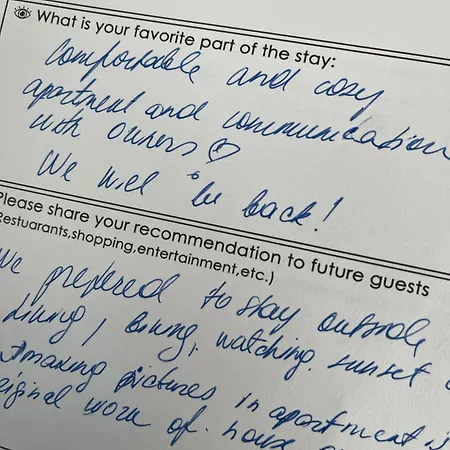 What is your favorite part of the stay:
Comfortable and cosy
apartment and communication
with owners ♡
We will be back!
Please share your recommendation to future guests
Restuarants,shopping,entertainment,etc.)
We prefered to stay outside
watching sunset
Amazing pictures in apartment is
original work of house